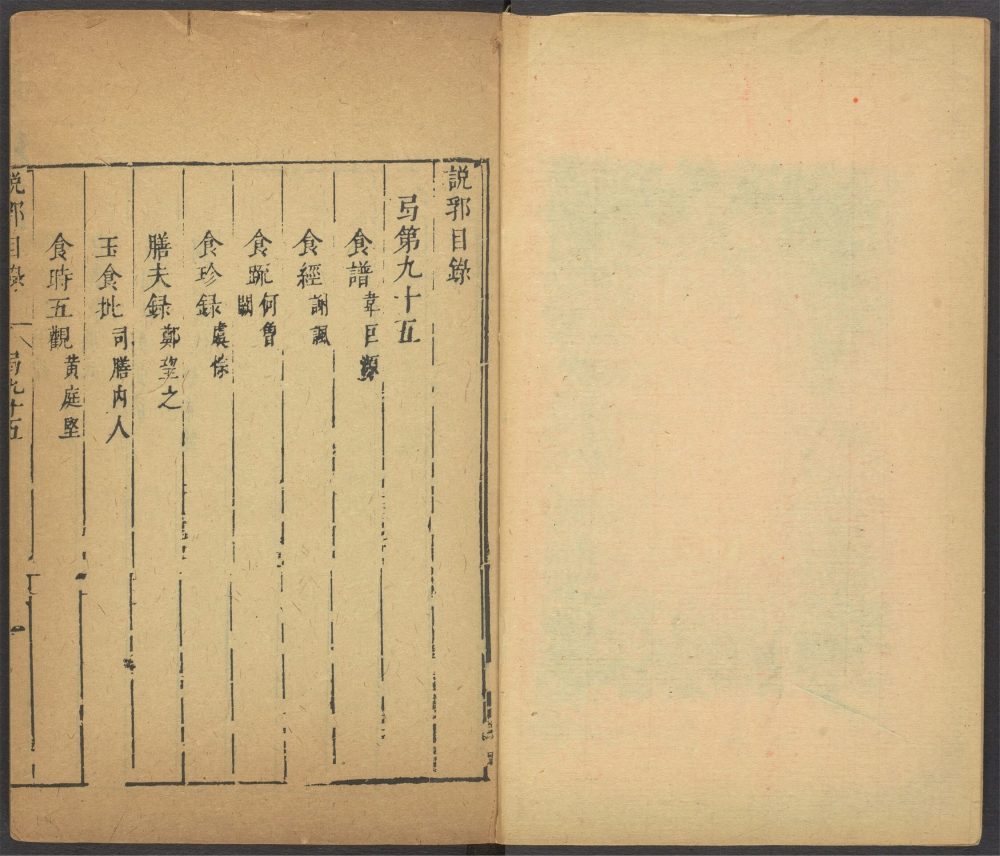 說郛目錄
弓第九十五
食譜 韋巨源
食經 謝諷
食䟽 何曾 闕
食珍録 虞悰
膳夫録 鄭望之
玉食批 司膳内人
食時五觀 黃庭堅
說郛目錄 弓九十五 一